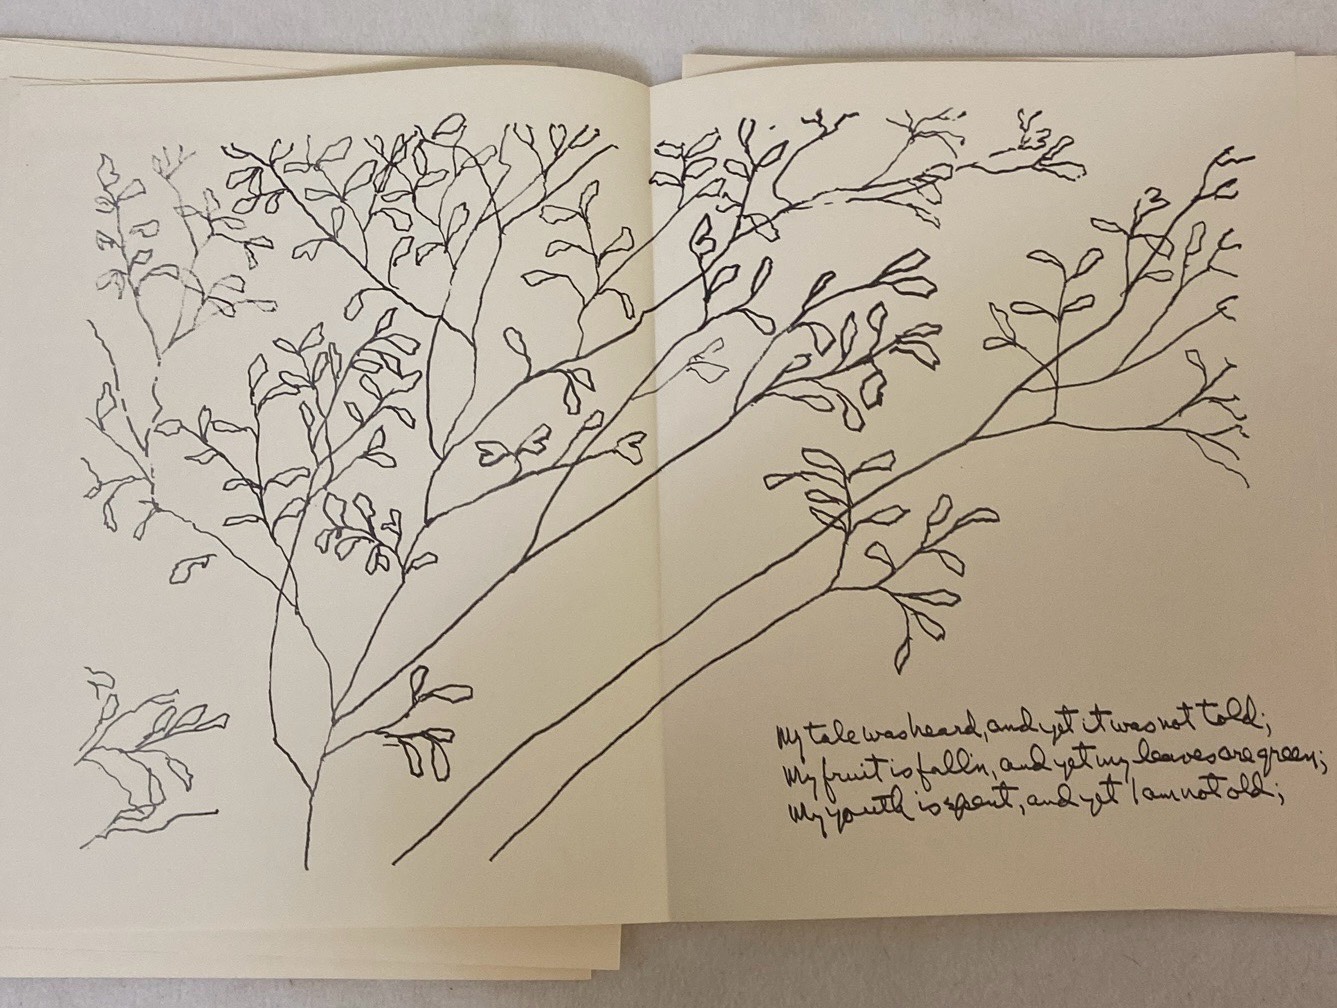 My tale was heard, and yet it was not told;
My fruit is fall'n, and yet my leaves are green;
My youth is spent, and yet I am not old;